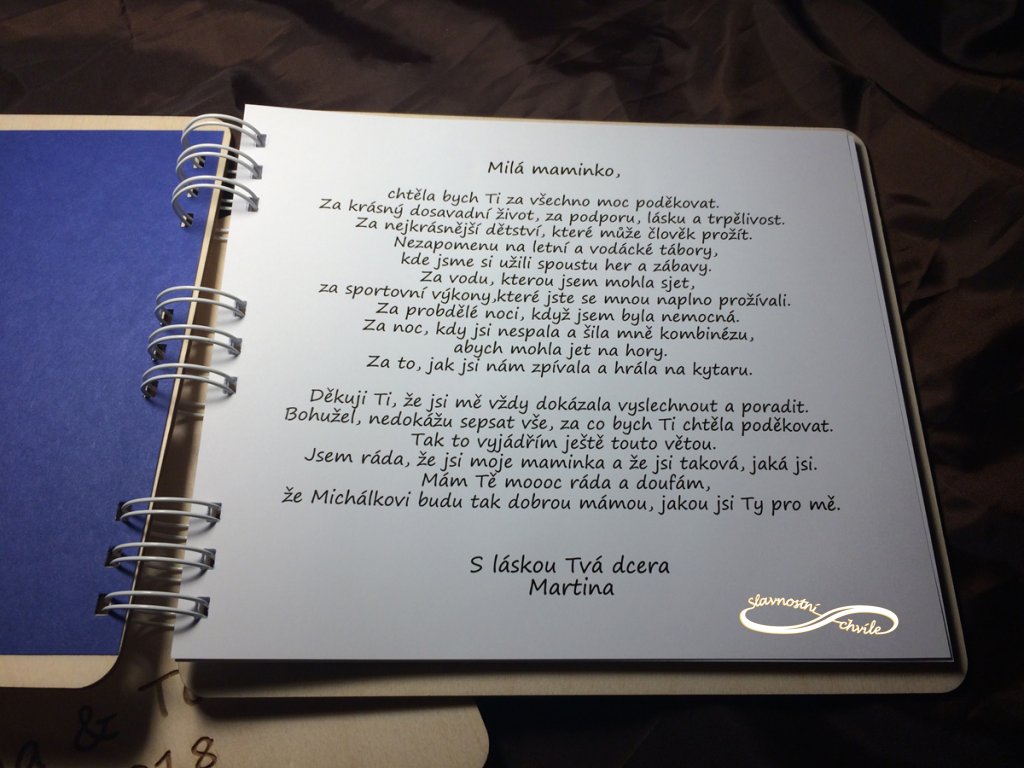 Milá maminko,
chtěla bych Ti za všechno moc poděkovat.
Za krásný dosavadní život, za podporu, lásku a trpělivost.
Za nejkrásnější dětství, které může člověk prožít.
Nezapomenu na letní a vodácké tábory,
kde jsme si užili spoustu her a zábavy.
Za vodu, kterou jsem mohla sjet,
za sportovní výkony,které jste se mnou naplno prožívali.
Za probdělé noci, když jsem byla nemocná.
Za noc, kdy jsi nespala a šila mně kombinézu,
abych mohla jet na hory.
Za to, jak jsi nám zpívala a hrála na kytaru.
Děkuji Ti, že jsi mě vždy dokázala vyslechnout a poradit.
Bohužel, nedokážu sepsat vše, za co bych Ti chtěla poděkovat.
Tak to vyjádřím ještě touto větou.
Jsem ráda, že jsi moje maminka a že jsi taková, jaká jsi.
Mám Tě moooc ráda a doufám,
že Michálkovi budu tak dobrou mámou, jakou jsi Ty pro mě.
S láskou Tvá dcera
Martina
Slavnostní
chvíle
&
18